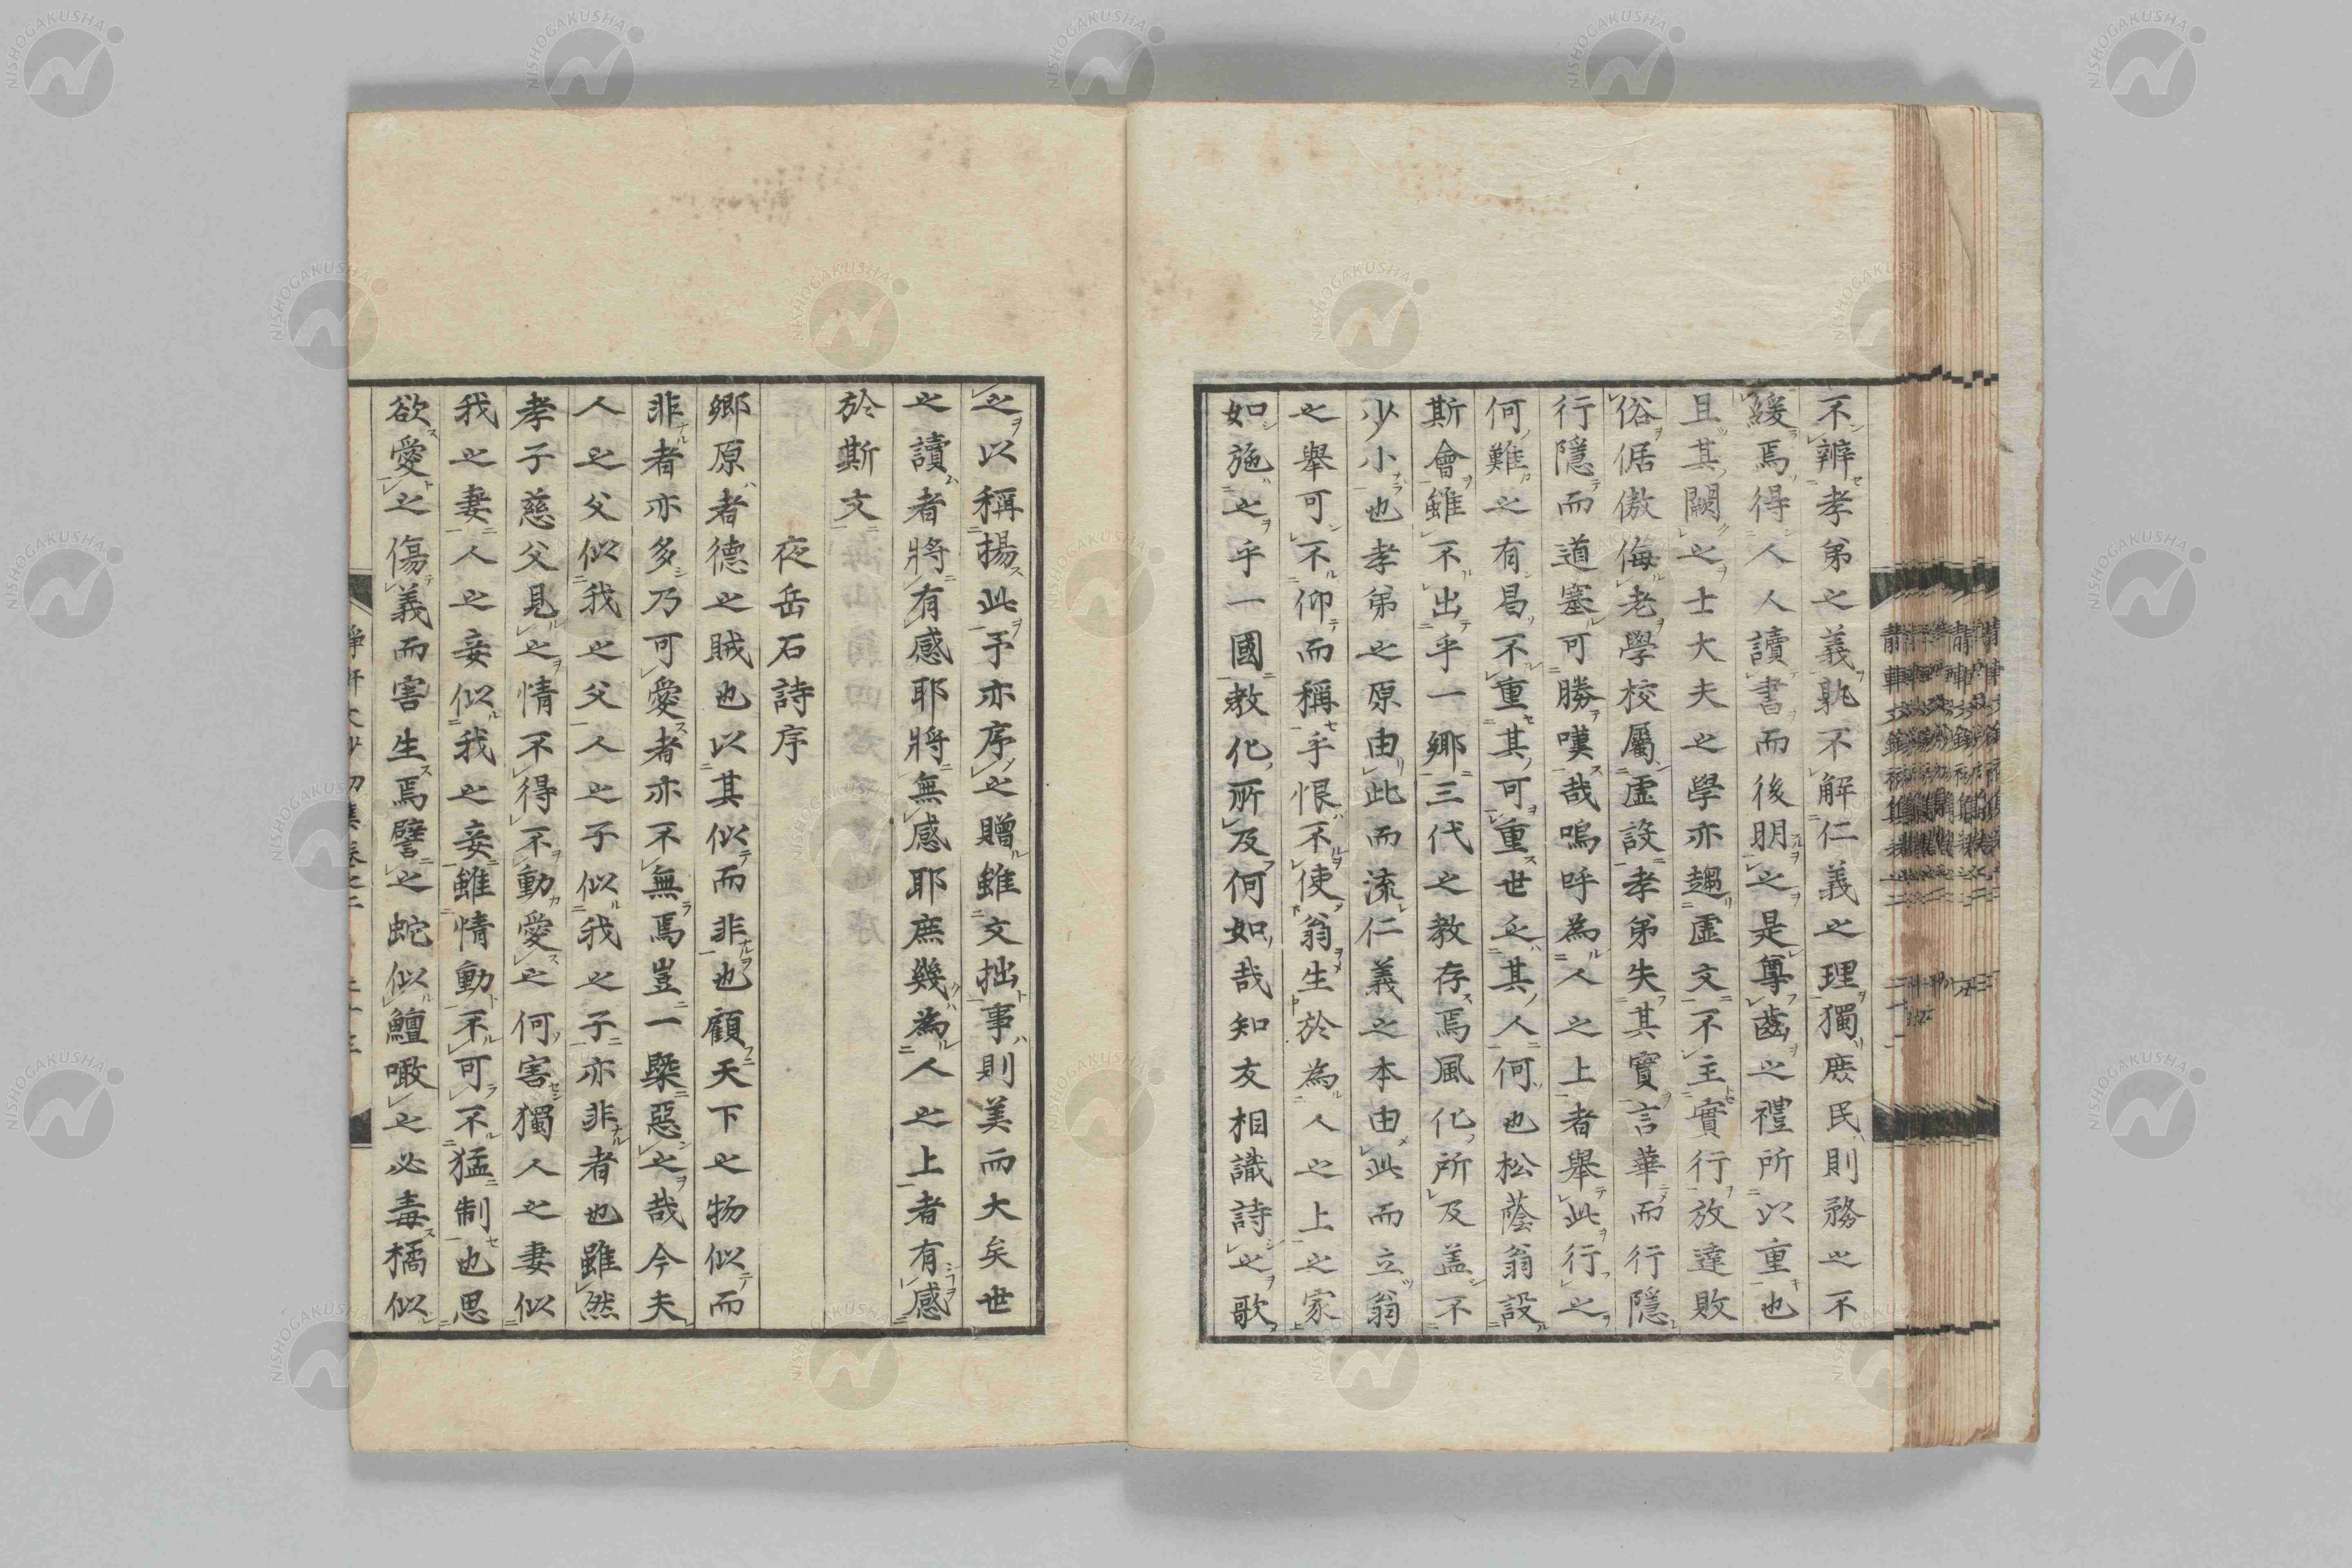 不辨孝弟之義孰不解仁義之理獨庶民則務之不
緩焉得人人讀書而後明之是尊齒之禮所以重也
且其闕之士大夫之學亦趨虛文不主實行放達敗
俗倨傲侮老學校屬虛設孝弟失其實言華而行隱
行隱而道塞可勝嘆哉嗚呼為人之上者舉此行之
何難之有曷不重其可重世之其人何也松蔭翁設
斯會雖不出乎一鄉三代之教存焉風化所及盖不
少小也孝弟之原由此而流仁義之本由此而立翁
之舉可不仰而稱乎恨不使翁生於為人之上之家
如施之乎一國教化所及何如哉知友相識詩之歌
之以稱揚此予亦序之贈雖文拙事則美而大矣世
之讀者將有感耶將無感耶庶幾為人之上者有感
於斯文
夜岳石詩序
鄉原者德之賊也以其似而非也顧天下之物似而
非者亦多乃可愛者亦不無焉豈一槩惡之哉今夫
人之父似我之父人之子似我之子亦非者也雖然
孝子慈父見之情不得不動愛之何害獨人之妻似
我之妻人之妾似我之妾雖情動不可不猛制也思
欲愛之傷義而害生焉譬之蛇似鱣噉之必毒橘似